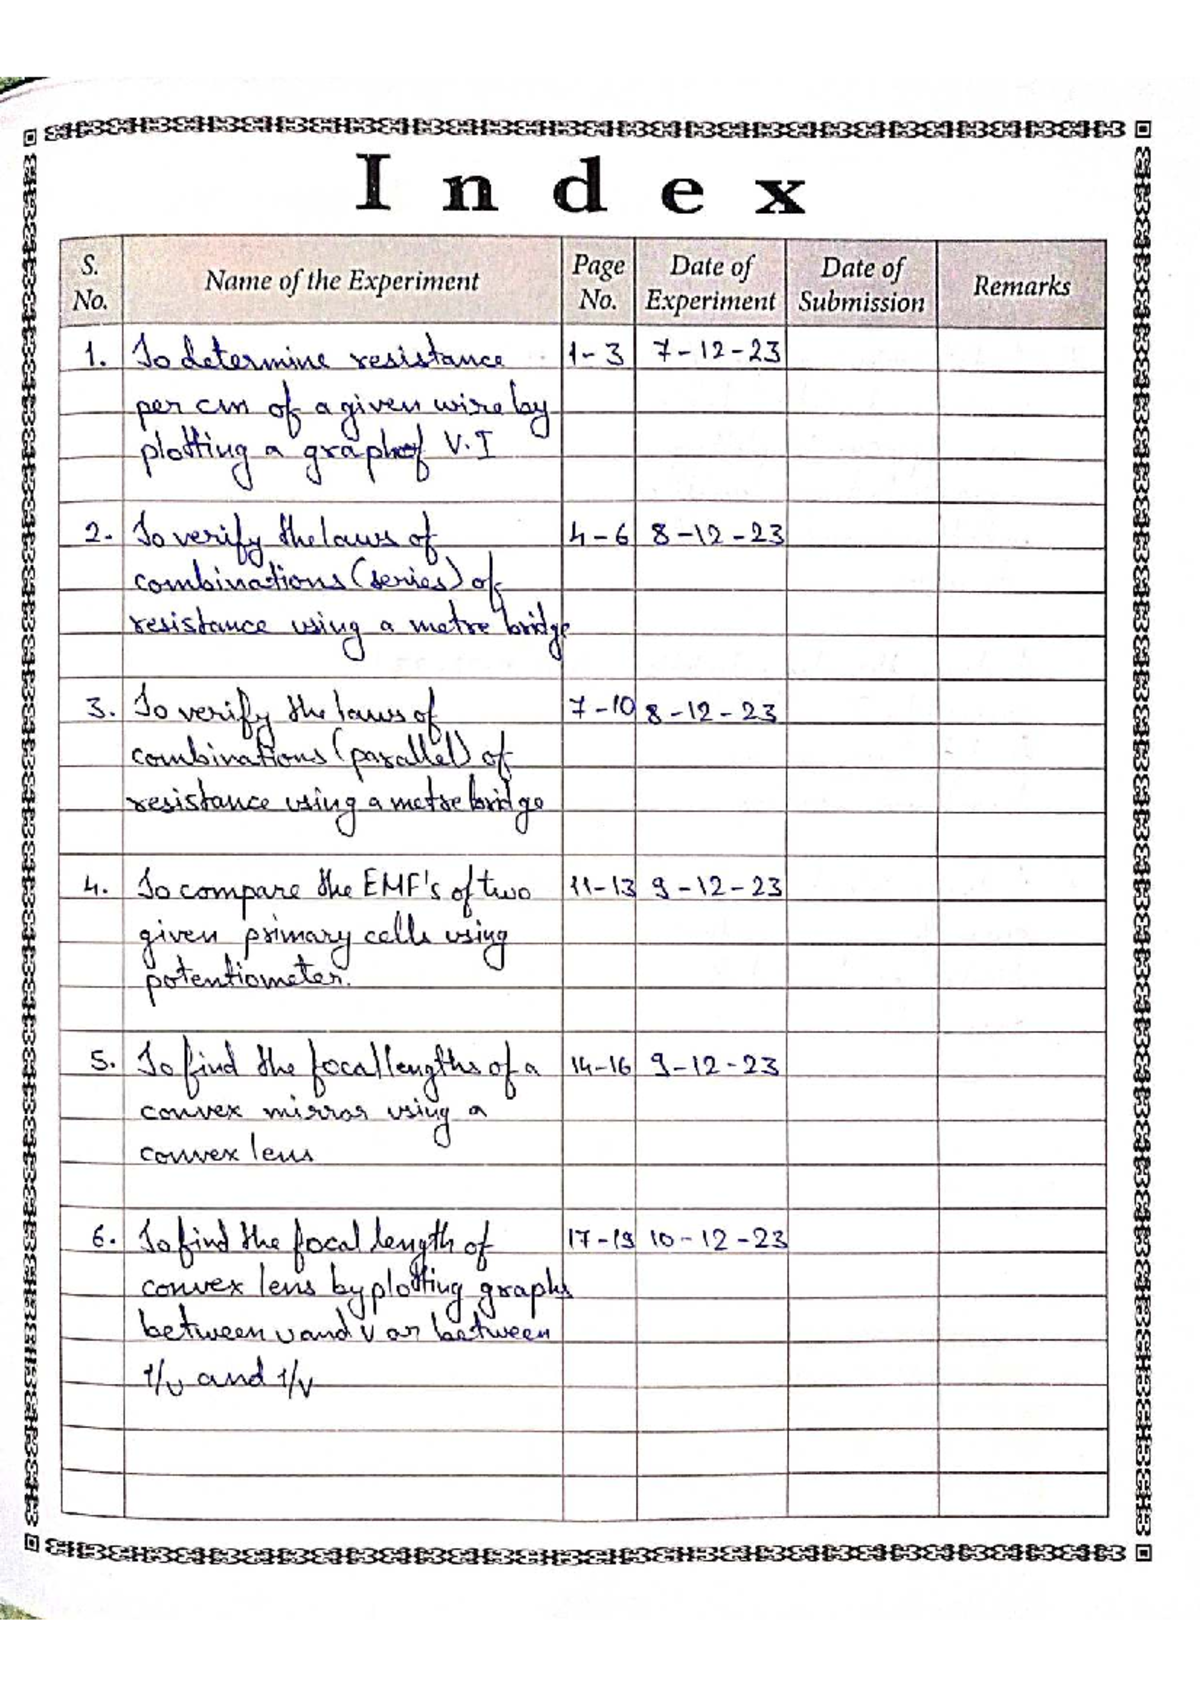 Index
S. No. Name of the Experiment Page No. Date of Experiment Date of Submission Remarks
1. To determine resistance 1-3 7-12-23
per cm of a given wire by
plotting a graph of V.I
2. To verify the laws of 4-6 8-12-23
combinations (series) of
resistance using a metre bridge
3. To verify the laws of 7-10 8-12-23
combinations (parallel) of
resistance using a metre bridge
4. To compare the EMF's of two 11-13 9-12-23
given primary cells using
potentiometer.
5. To find the focal lengths of a 14-16 9-12-23
convex mirror using a
convex lens
6. To find the focal length of 17-19 10-12-23
convex lens by plotting graphs
between u and v or between
1/u and 1/v